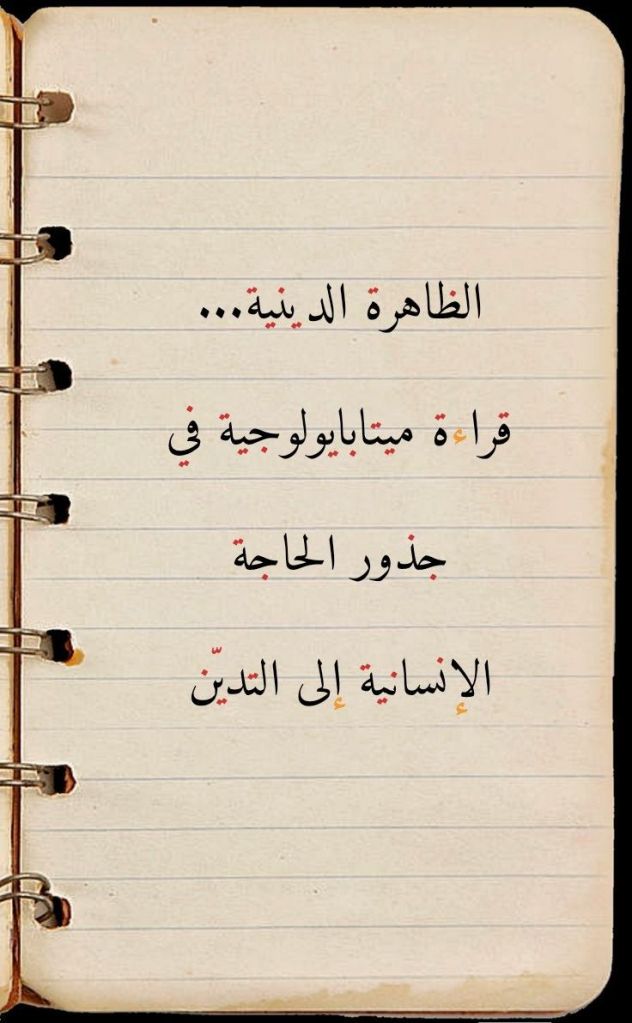 الظاهرة الدينية...
قراءة ميتابايولوجية في
جذور الحاجة
الإنسانية إلى التديّن